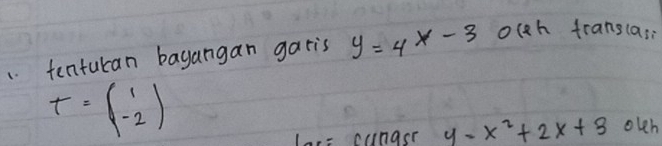 1. tentukan bayangan garis y = 4x - 3 oleh translasi
T = (1 -2)
fungsi y = x² + 2x + 3 oleh